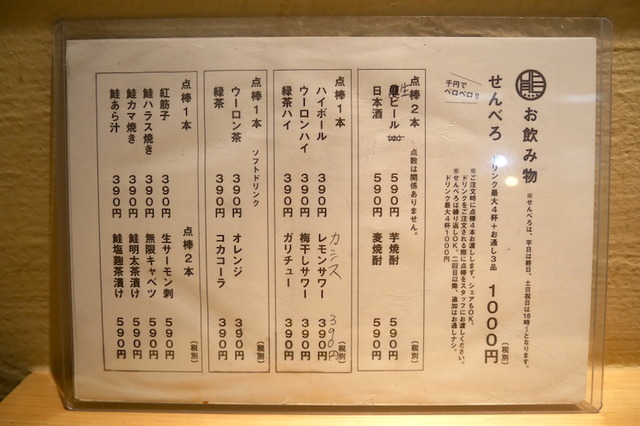 お飲み物
※せんべろは、平日は終日、土日祝日は16時〜となります。
千円で
ベロベロ!!
せんべろ ドリンク最大4杯+お通し3品 1000円 (税別)
※ご注文時に点棒4本お渡しします。シェアもOK。
ドリンクをご注文される際に点棒をスタッフにお渡しください。
※せんべろは繰り返しOK。二回目以降、追加はお通しナシ。
ドリンク最大4杯1000円
点棒2本 点数は関係ありません。
生ビール(中) 590円
日本酒 590円
芋焼酎 590円
麦焼酎 590円
(税別)
点棒1本
ハイボール 390円
ウーロンハイ 390円
緑茶ハイ 390円
カシス 390円
レモンサワー 390円
梅干しサワー 390円
ガリチュー 390円
(税別)
点棒1本 ソフトドリンク
ウーロン茶 390円
緑茶 390円
オレンジ 390円
コカコーラ 390円
(税別)
点棒1本
紅筋子 390円
鮭ハラス焼き 390円
鮭カマ焼き 390円
鮭あら汁 390円
点棒2本
生サーモン刺 590円
無限キャベツ 590円
鮭明太茶漬け 590円
鮭塩麹茶漬け 590円
(税別)